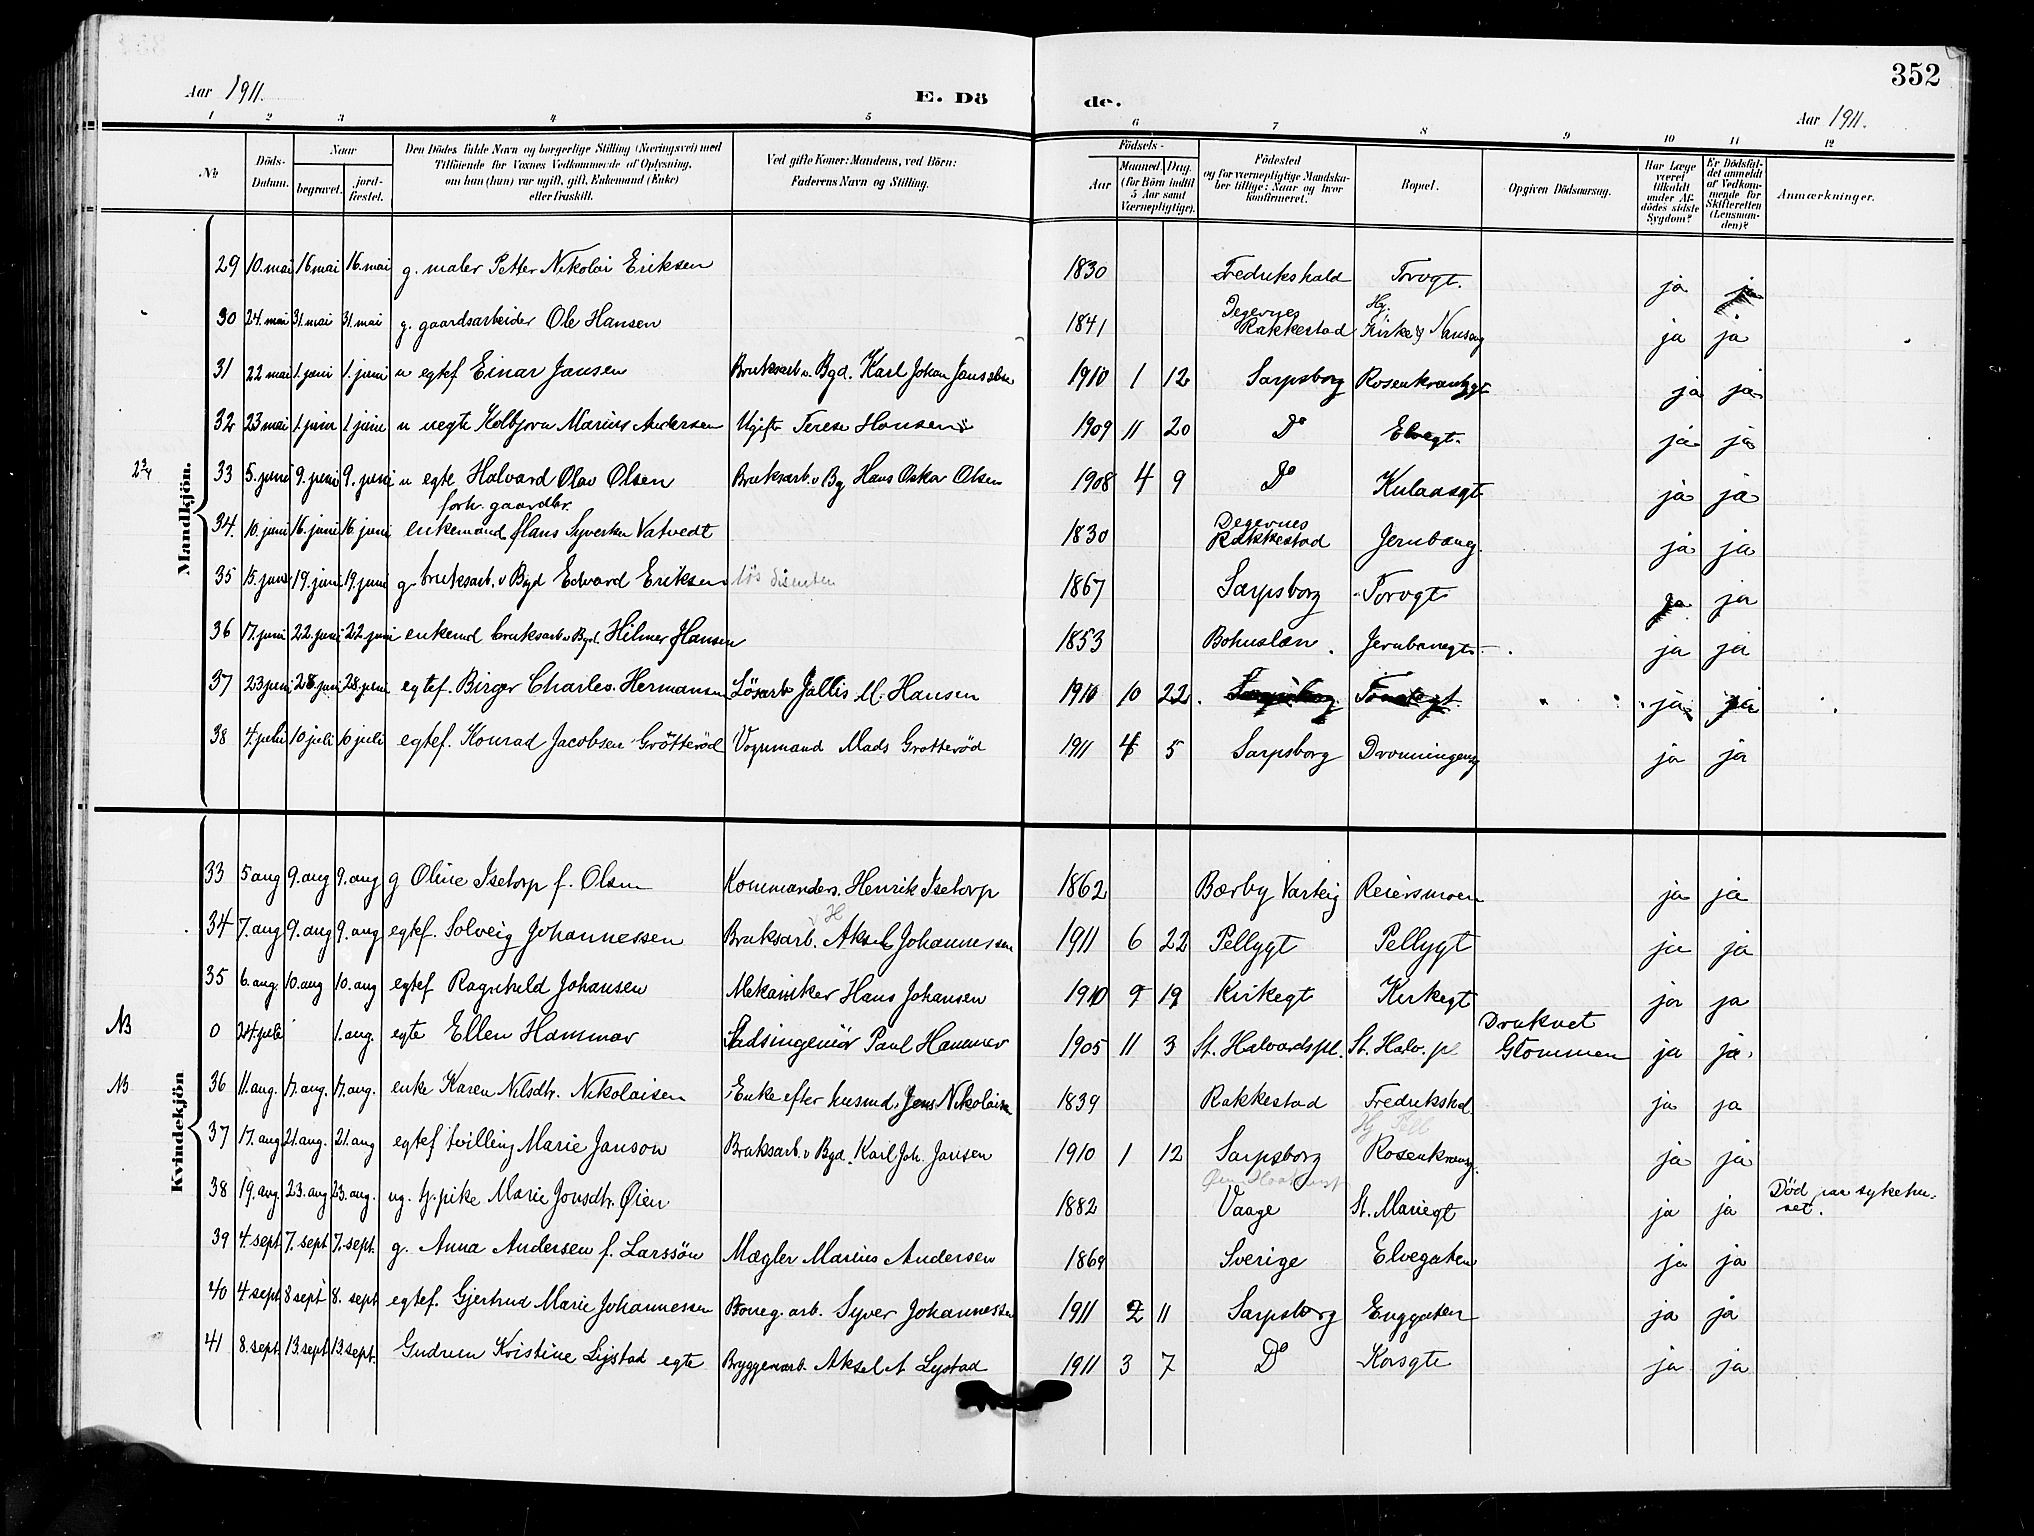 352
Aar 1911.
E. Dö
de.
Aar 1911.
1 2 3 4 5 6 7 8 9 10 11 12
No
Döds-Datum.
Naar
begravet.
jord-fæstet.
Den Dödes fulde Navn og borgerlige Stilling (Næringsvei) med
Tilföiende for Voxnes Vedkommende af Oplysning,
om han (hun) var ugift, gift, Enkemand (Enke)
eller fraskilt.
Ved gifte Koner: Mandens, ved Börn:
Faderens Navn og Stilling.
Födsels-
Aar
Maaned. Dag.
(for Börn indtil
5 Aar samt
Værnepligtige).
Födested
og for værnepligtige Mandska-
ber tillige: Naar og hvor
konfirmeret.
Bopæl.
Opgiven Dödsaarsag.
Har Læge
været
tilkaldt
under Af-
dödes sidste
Sygdom?
Er Dödsfal-
det anmeldt
af Vedkom-
mende for
Skifteretten
(Lensman-
den)?
Anmærkninger.
Mandkjön.
29 10. mai 16 mai 16. mai g. maler Petter Nikolai Eriksen 1830 Fredrikshald Torvgt. ja ja
30 24. mai 31. mai 31. mai g. gaardsarbeider Ole Hansen 1841 Degernes Rakkestad Hj. Kirkeg Nanseng ja ja
31 22 mai 1. juni 1. juni u egtef Einar Jansen Bruksarb. v. Bgd. Karl Johan Janssen 1910 1 12 Sarpsborg Rosenkrantzgt ja ja
32 23 mai 1. juni 1 juni u uegte Kolbjorn Marius Andersen Ugift Terese Hansen 1909 11 20 Do Elvegt. ja ja
2¾ 33 5. juni 9. juni 9. juni u egte Halvard Olav Olsen Bruksarb. v Bg Hans Oskar Olsen 1908 4 9 Do Kulaasgt ja ja
forh. gaardbr.
34. 10. juni 16. juni 16. juni enkemand Hans Syversen Vatvedt 1830 Degernes Rakkestad Jernbaneg. ja ja
35 15. juni 19. juni 19. juni g. bruksarb. v Bgd Edvard Eriksen løs disenten 1867 Sarpsborg Torvgt ja ja
36 17. juni 22. juni 22. juni enkemd bruksarb v Bgd. Hilmer Hansen 1853 Bohuslän. Jernbanegt. ja ja
37 23 juni 28. juni 28. juni egtef. Birger Charles Hermansen Lösarb Jallis M. Hansen 1910 10 22. ja ja
38 4. juli 10 juli 10 juli egtef. Konrad Jacobsen Grötteröd Vognmand Mads Grotteröd 1911 4 5 Sarpsborg Dronningensg ja ja
Kvindekjön
33 5 aug 9. aug 9. aug g Oline Isetorp f. Olsen Kommanders. Henrik Isetorp 1862 Bærby Varteig Reiersmoen ja ja
34 7. aug 9. aug 9. aug egtef. Solveig Johannessen Bruksarb. v H Aksel Johannessen 1911 6 22 Pellygt Pellygt ja ja
35 6. aug. 10. aug 10. aug egtef Ragnhild Johansen Mekaniker Hans Johansen 1910 9 19 Kirkegt Kirkegt ja ja
NB 0 24. juli 1. aug. egte Ellen Hammer Stadsingeniör Paul Hammer 1905 11 3 St. Halvardspl. St. Halv. pl Druknet Glommen ja ja
NB 36 11. aug. 17. aug. 17. aug. enke Karen Nilsdtr. Nikolaisen Enke efter husmd. Jens Nikolaisen 1839 Rakkestad Fredrikstad ja ja
37 17. aug 21. aug. 21. aug egtef tvilling Marie Janson Bruksarb. v Bgd. Karl Joh. Jansen 1910 1 12 Sarpsborg Hj Pell Rosenkransg. ja ja
38 19. aug 23. aug 23. aug. ug. tj. pike Marie Jonsdtr. Øien 1882 Vaage St. Mariegt ja ja Död paa sykehu-
set.
39 4. sept 7. sept 7. sept. g. Anna Andersen f. Larssön Mægler Marius Andersen 1869 Sverige Elvegaten ja ja
40 4 sept 8 sept 8. sept egtef. Gjertrud Marie Johannessen Boreg. arb. Syver Johannessen 1911 2 11 Sarpsborg Enggaten ja ja
41 8. sept. 13. sept 13. sept. Gudrun Kristine Lystad egte Bryggeriarb. Aksel A Lystad 1911 3 7 Do Korsgt ja ja